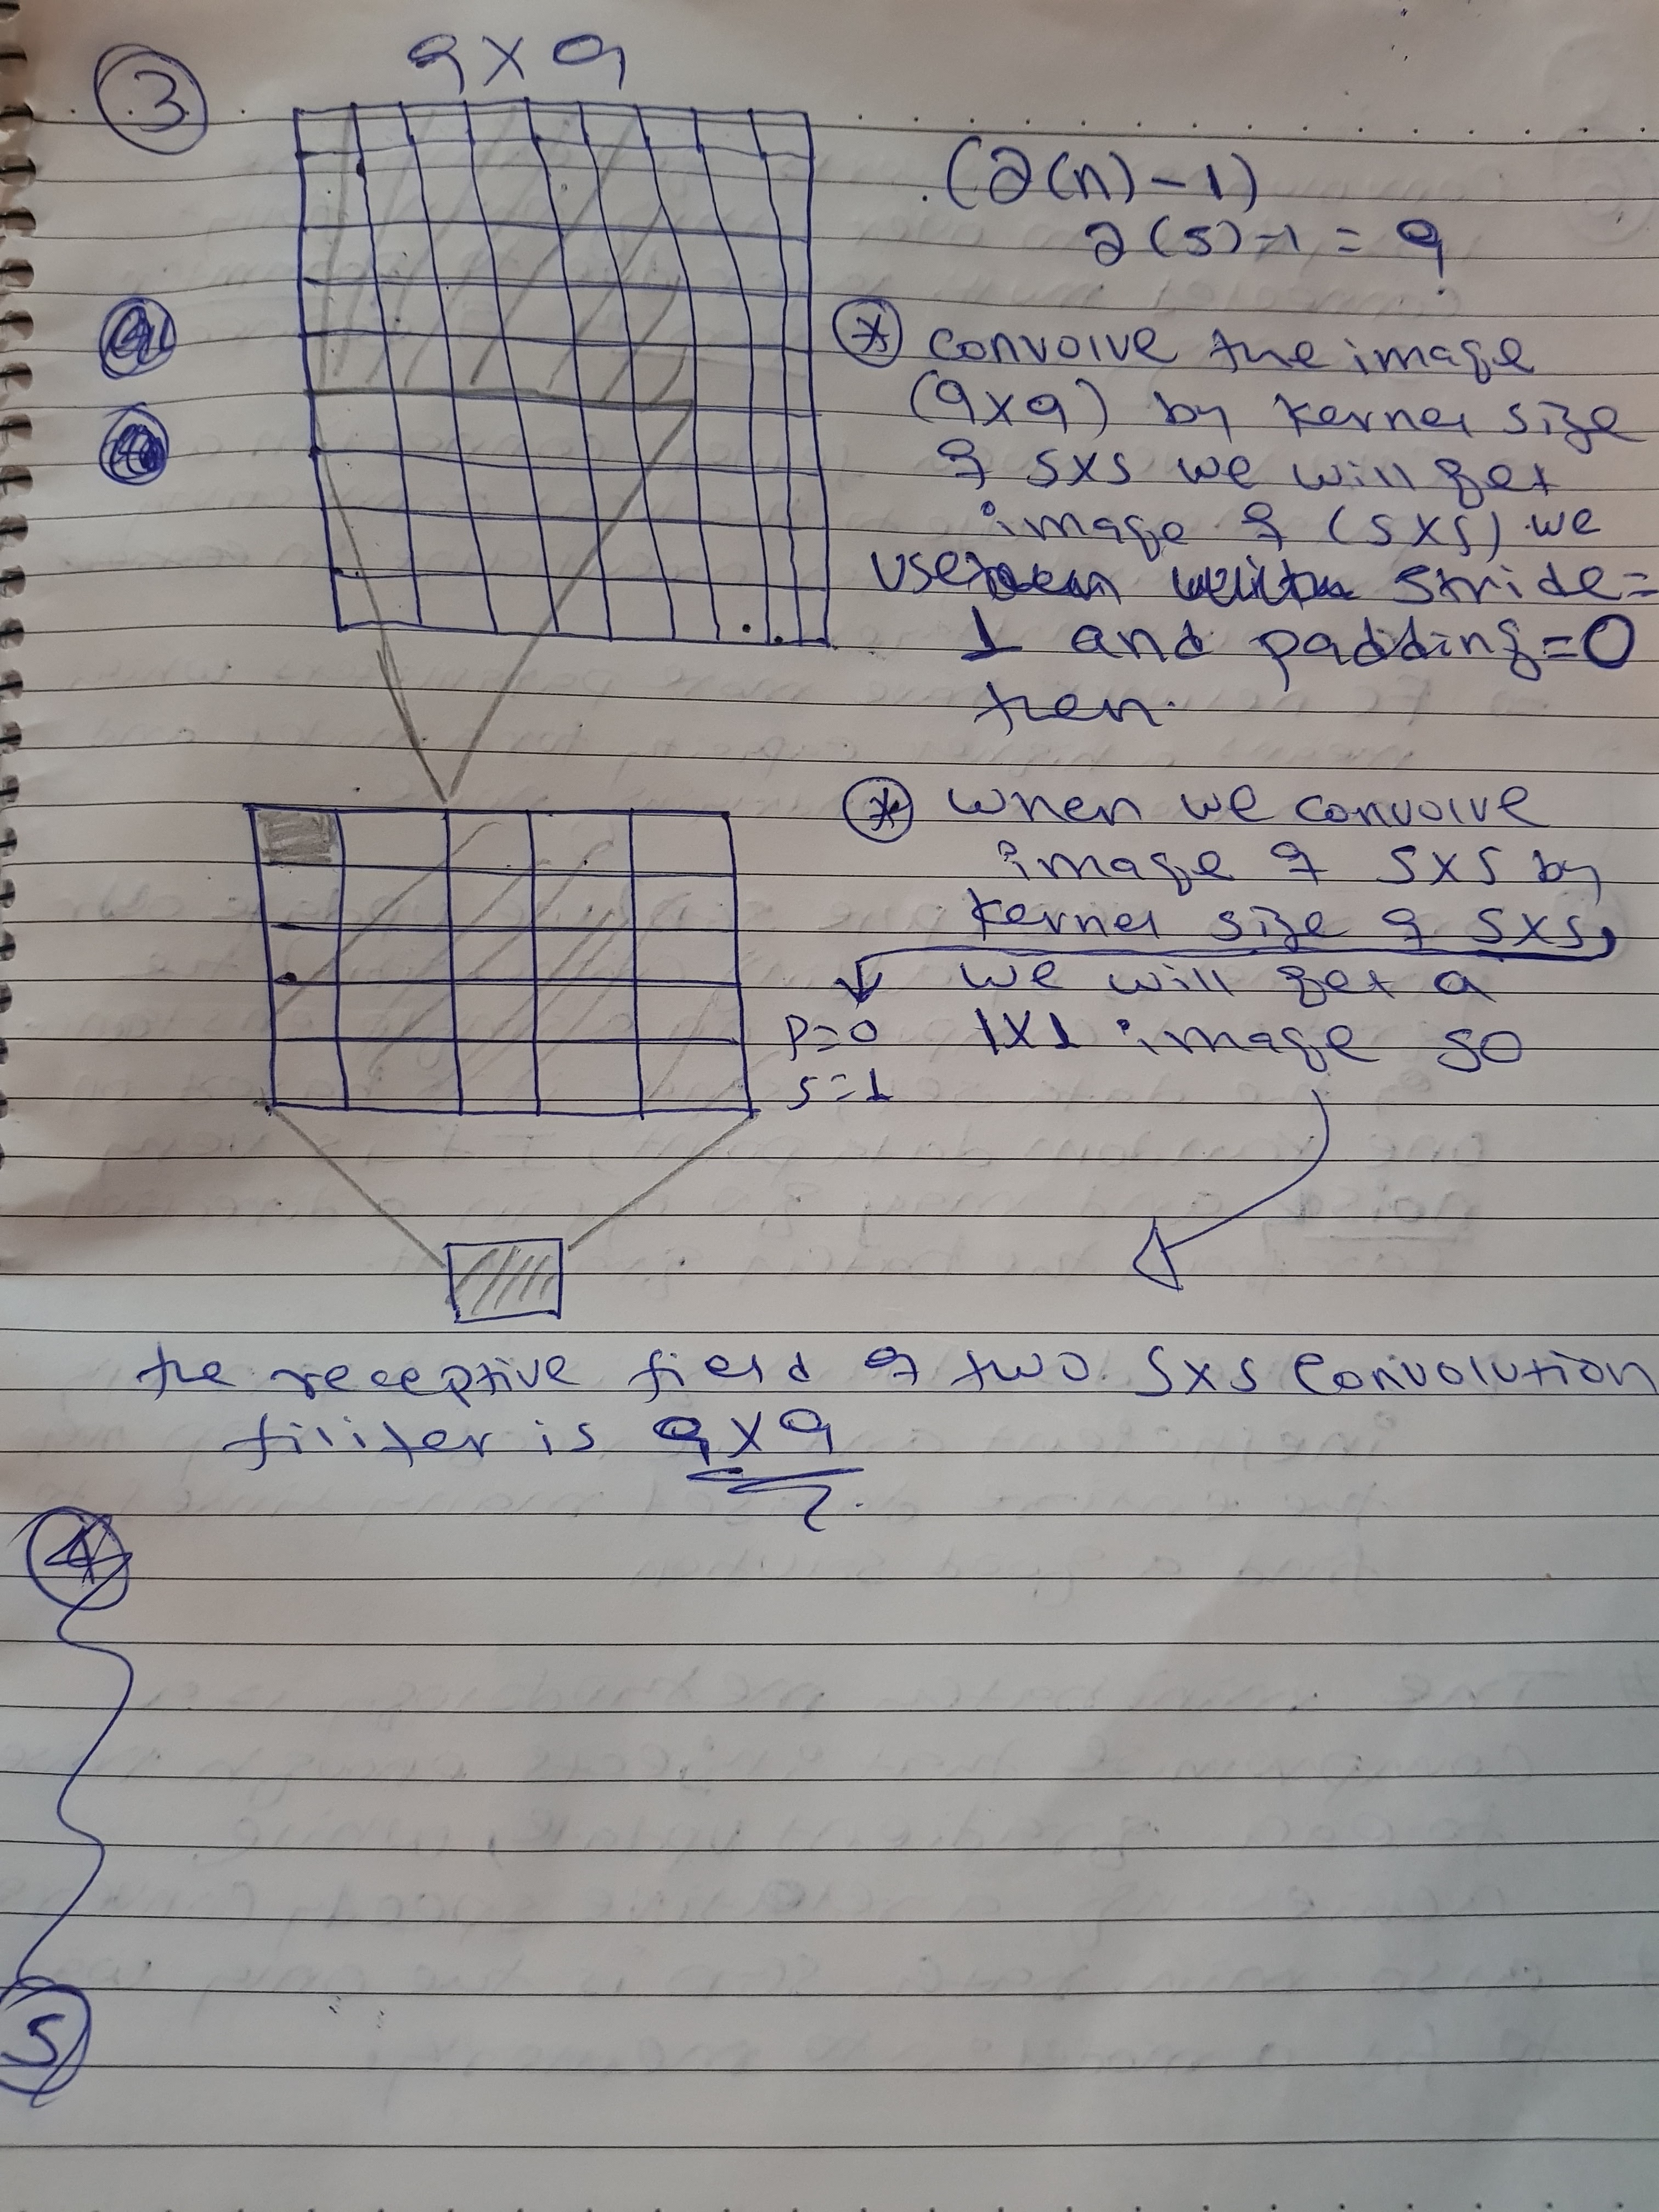 3
9x9
(2(n)-1)
2(5)-1 = 9
* convolve the image
(9x9) by kernel size
of 5x5 we will get
image of (5x5) we
use stride=
1 and padding=0
then.
* when we convolve
image of 5x5 by
kernel size of 5x5,
we will get a
P=0 1x1 image so
s=1
the receptive field of two 5x5 convolution
filter is 9x9
4
5